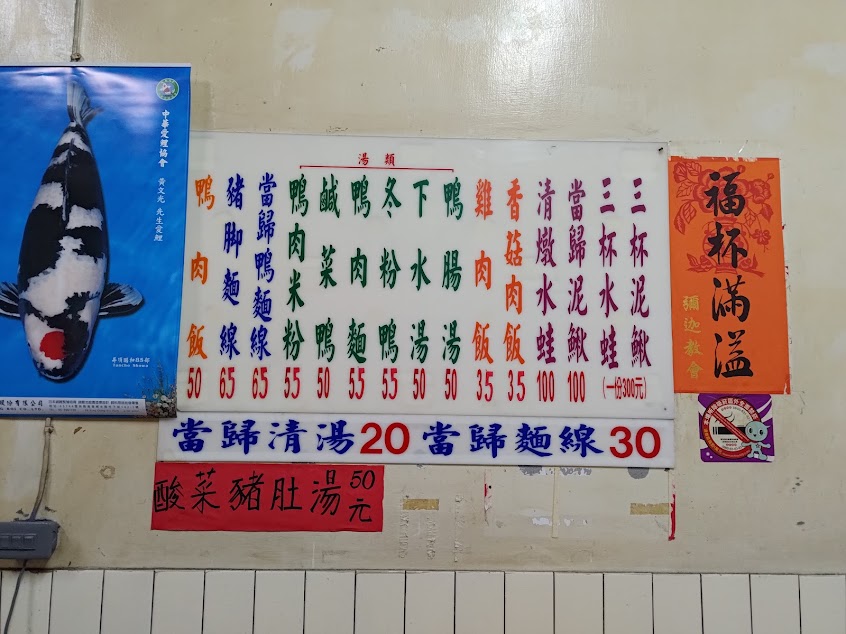 中華愛鯉協會
黃文光 先生愛鯉
昇頂昭和85部
Sansho Showa
股份有限公司
湯類
鴨肉飯 50
豬脚麵線 65
當歸鴨麵線 65
鴨肉米粉 55
鹹菜鴨 50
鴨肉麵 55
冬粉鴨 55
下水湯 50
鴨腸湯 50
雞肉飯 35
香菇肉飯 35
清燉水蛙 100
當歸泥鰍 100
三杯水蛙
三杯泥鰍
(一份300元)
當歸清湯20 當歸麵線30
酸菜豬肚湯 50元
福杯滿溢
彌迦教會